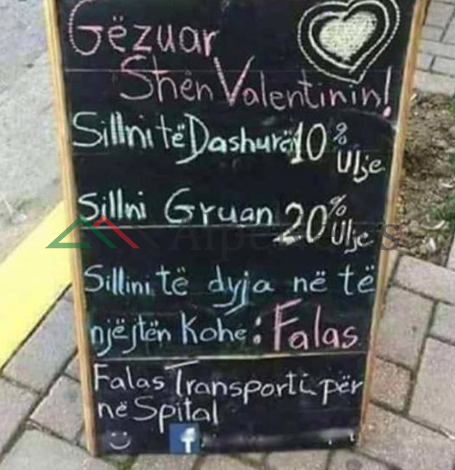 Gëzuar
Shën Valentinin!
Sillni të Dashurën 10% Ulje
Sillni Gruan 20% Ulje
Sillini të dyja në të
njëjtën Kohe: Falas
Falas Transporti për
në Spital